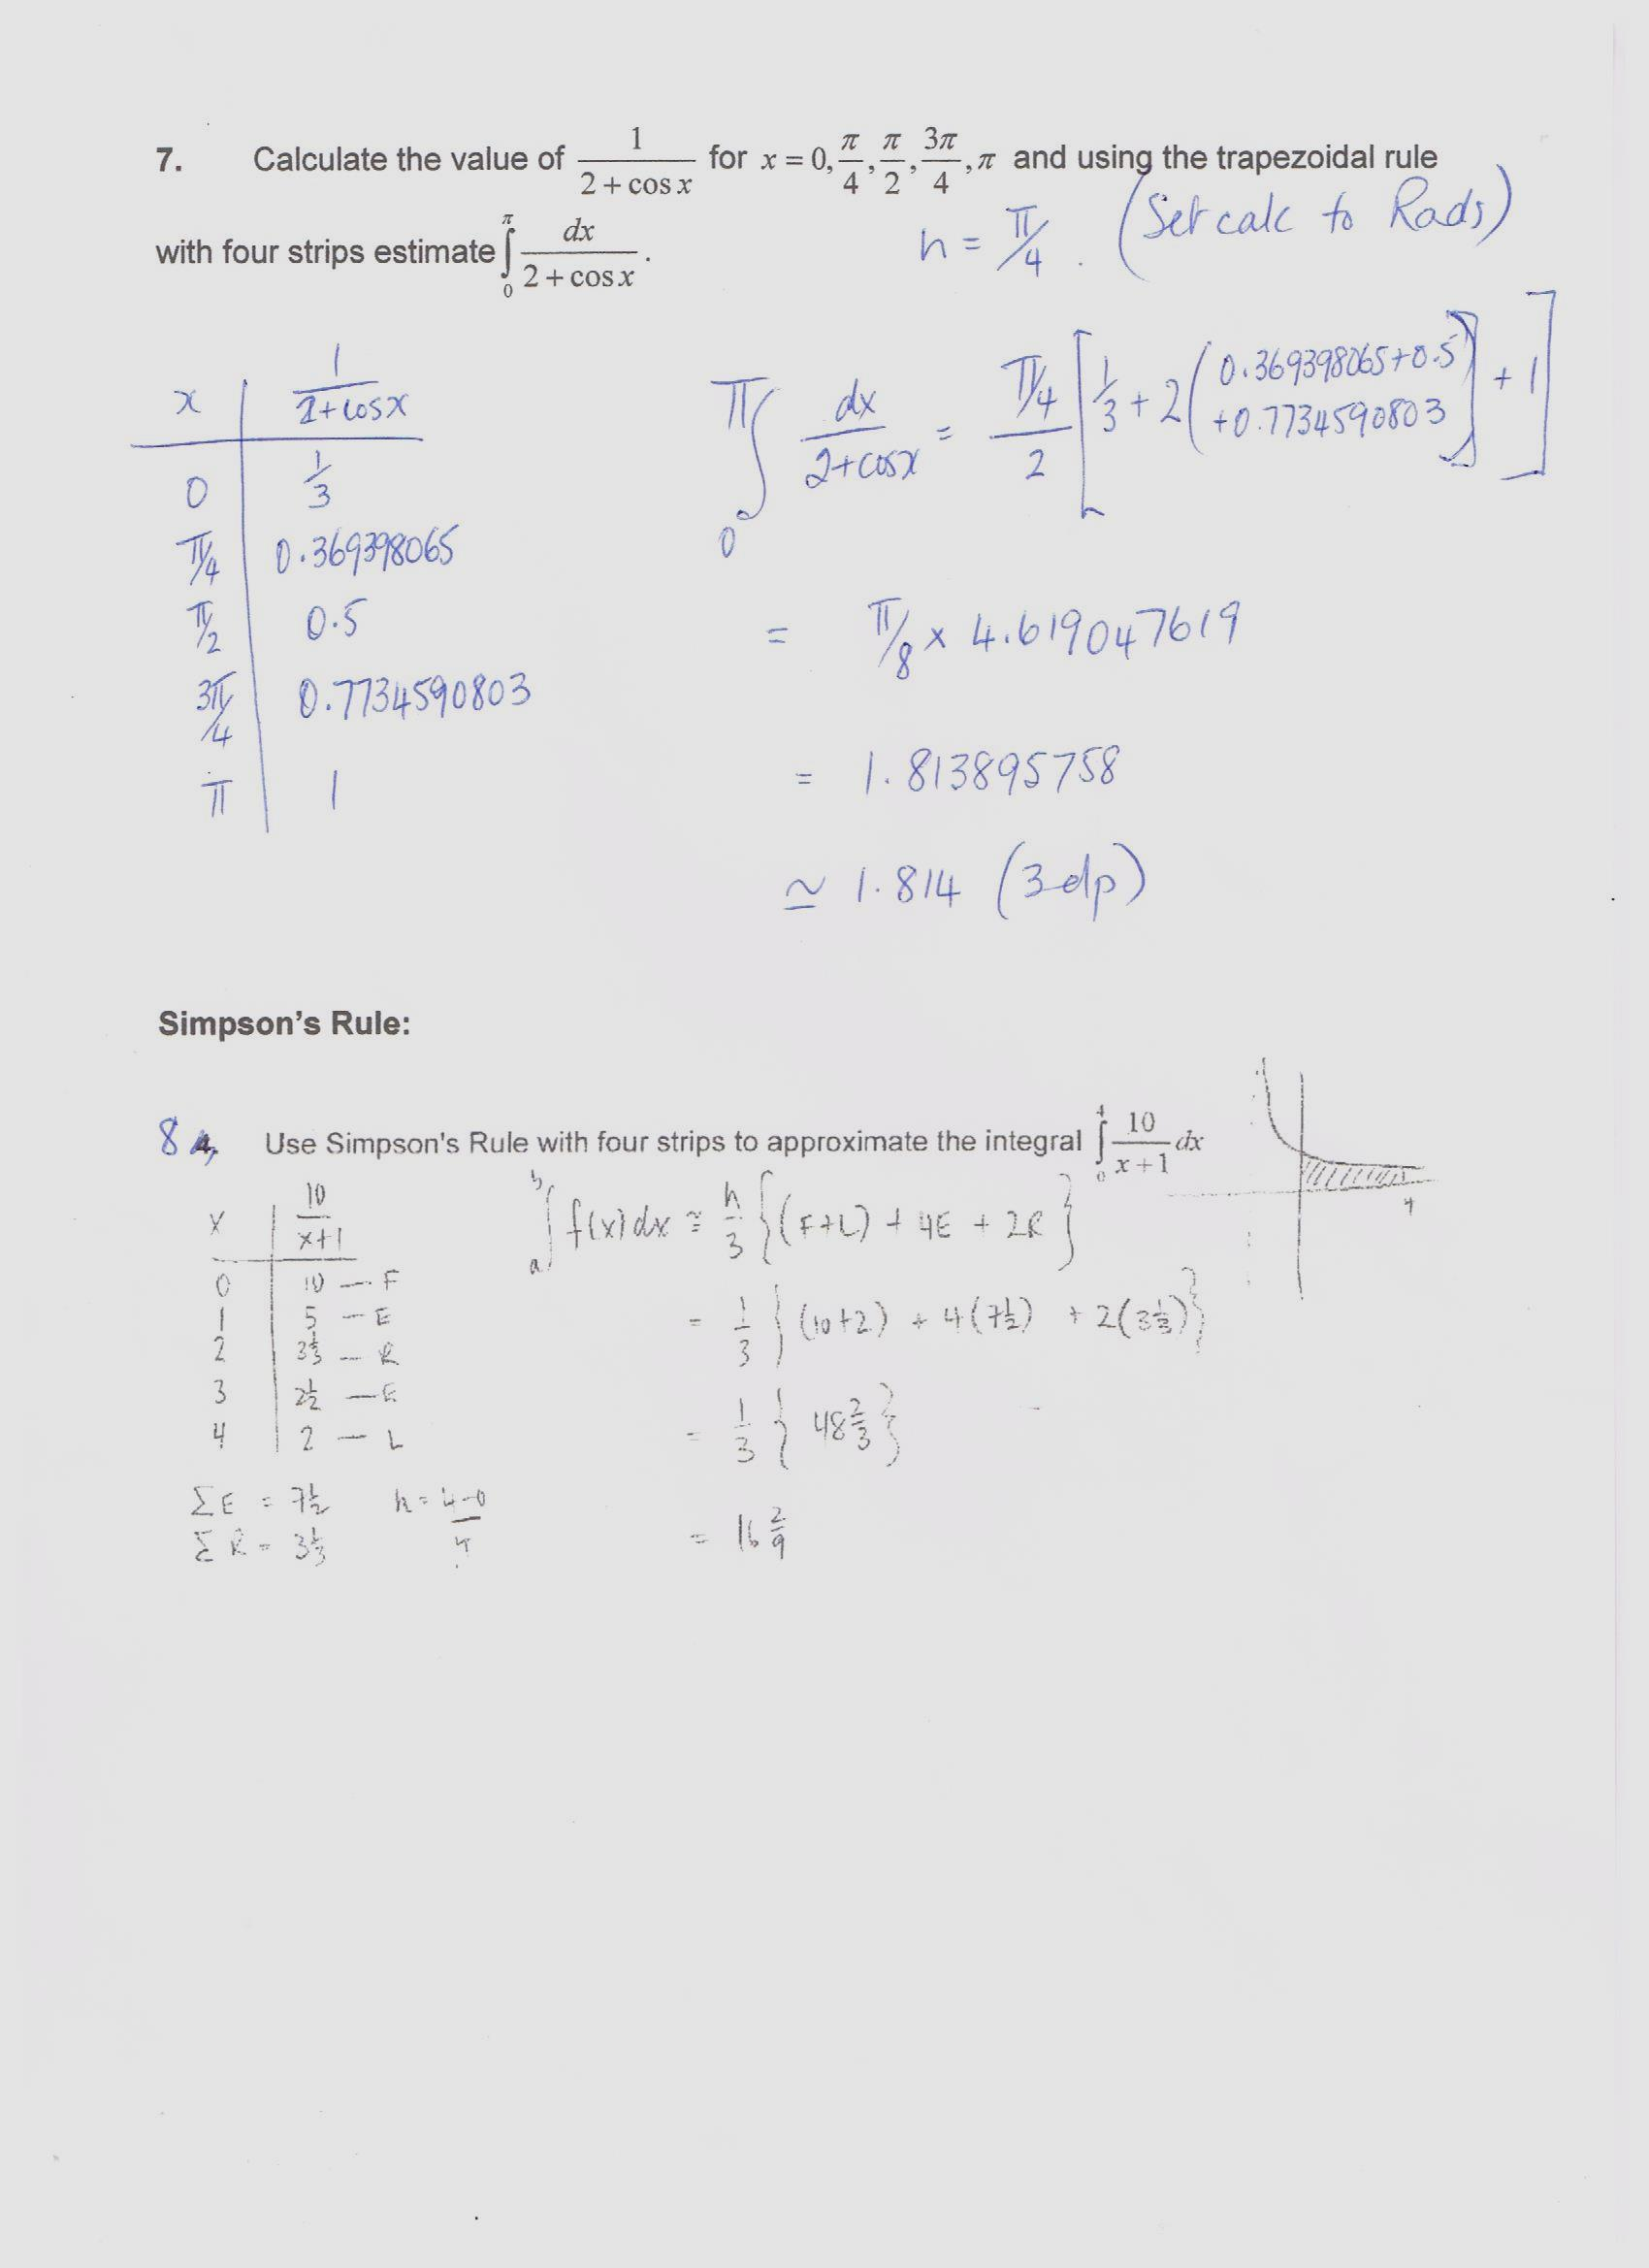 7. Calculate the value of 1/(2 + cos x) for x = 0, π/4, π/2, 3π/4, π and using the trapezoidal rule
with four strips estimate ∫₀^π dx/(2 + cos x).
h = π/4. (Set calc to Rads)
x | 1/(2+cosx)
0 | 1/3
π/4 | 0.369398065
π/2 | 0.5
3π/4 | 0.7734590803
π | 1
∫₀^π dx/(2+cosx) = (π/4)/2 [1/3 + 2(0.369398065+0.5
+0.7734590803) + 1]
= π/8 × 4.619047619
= 1.813895758
≃ 1.814 (3dp)
Simpson's Rule:
8 4, Use Simpson's Rule with four strips to approximate the integral ∫₀⁴ 10/(x+1) dx
4
x | 10/(x+1)
0 | 10 — F
1 | 5 — E
2 | 3⅓ — R
3 | 2½ — E
4 | 2 — L
ΣE = 7½ h = (4-0)/4
ΣR = 3⅓
∫ₐᵇ f(x) dx ≅ h/3 {(F+L) + 4E + 2R}
= 1/3 {(10+2) + 4(7½) + 2(3⅓)}
= 1/3 {48⅔}
= 16 2/9